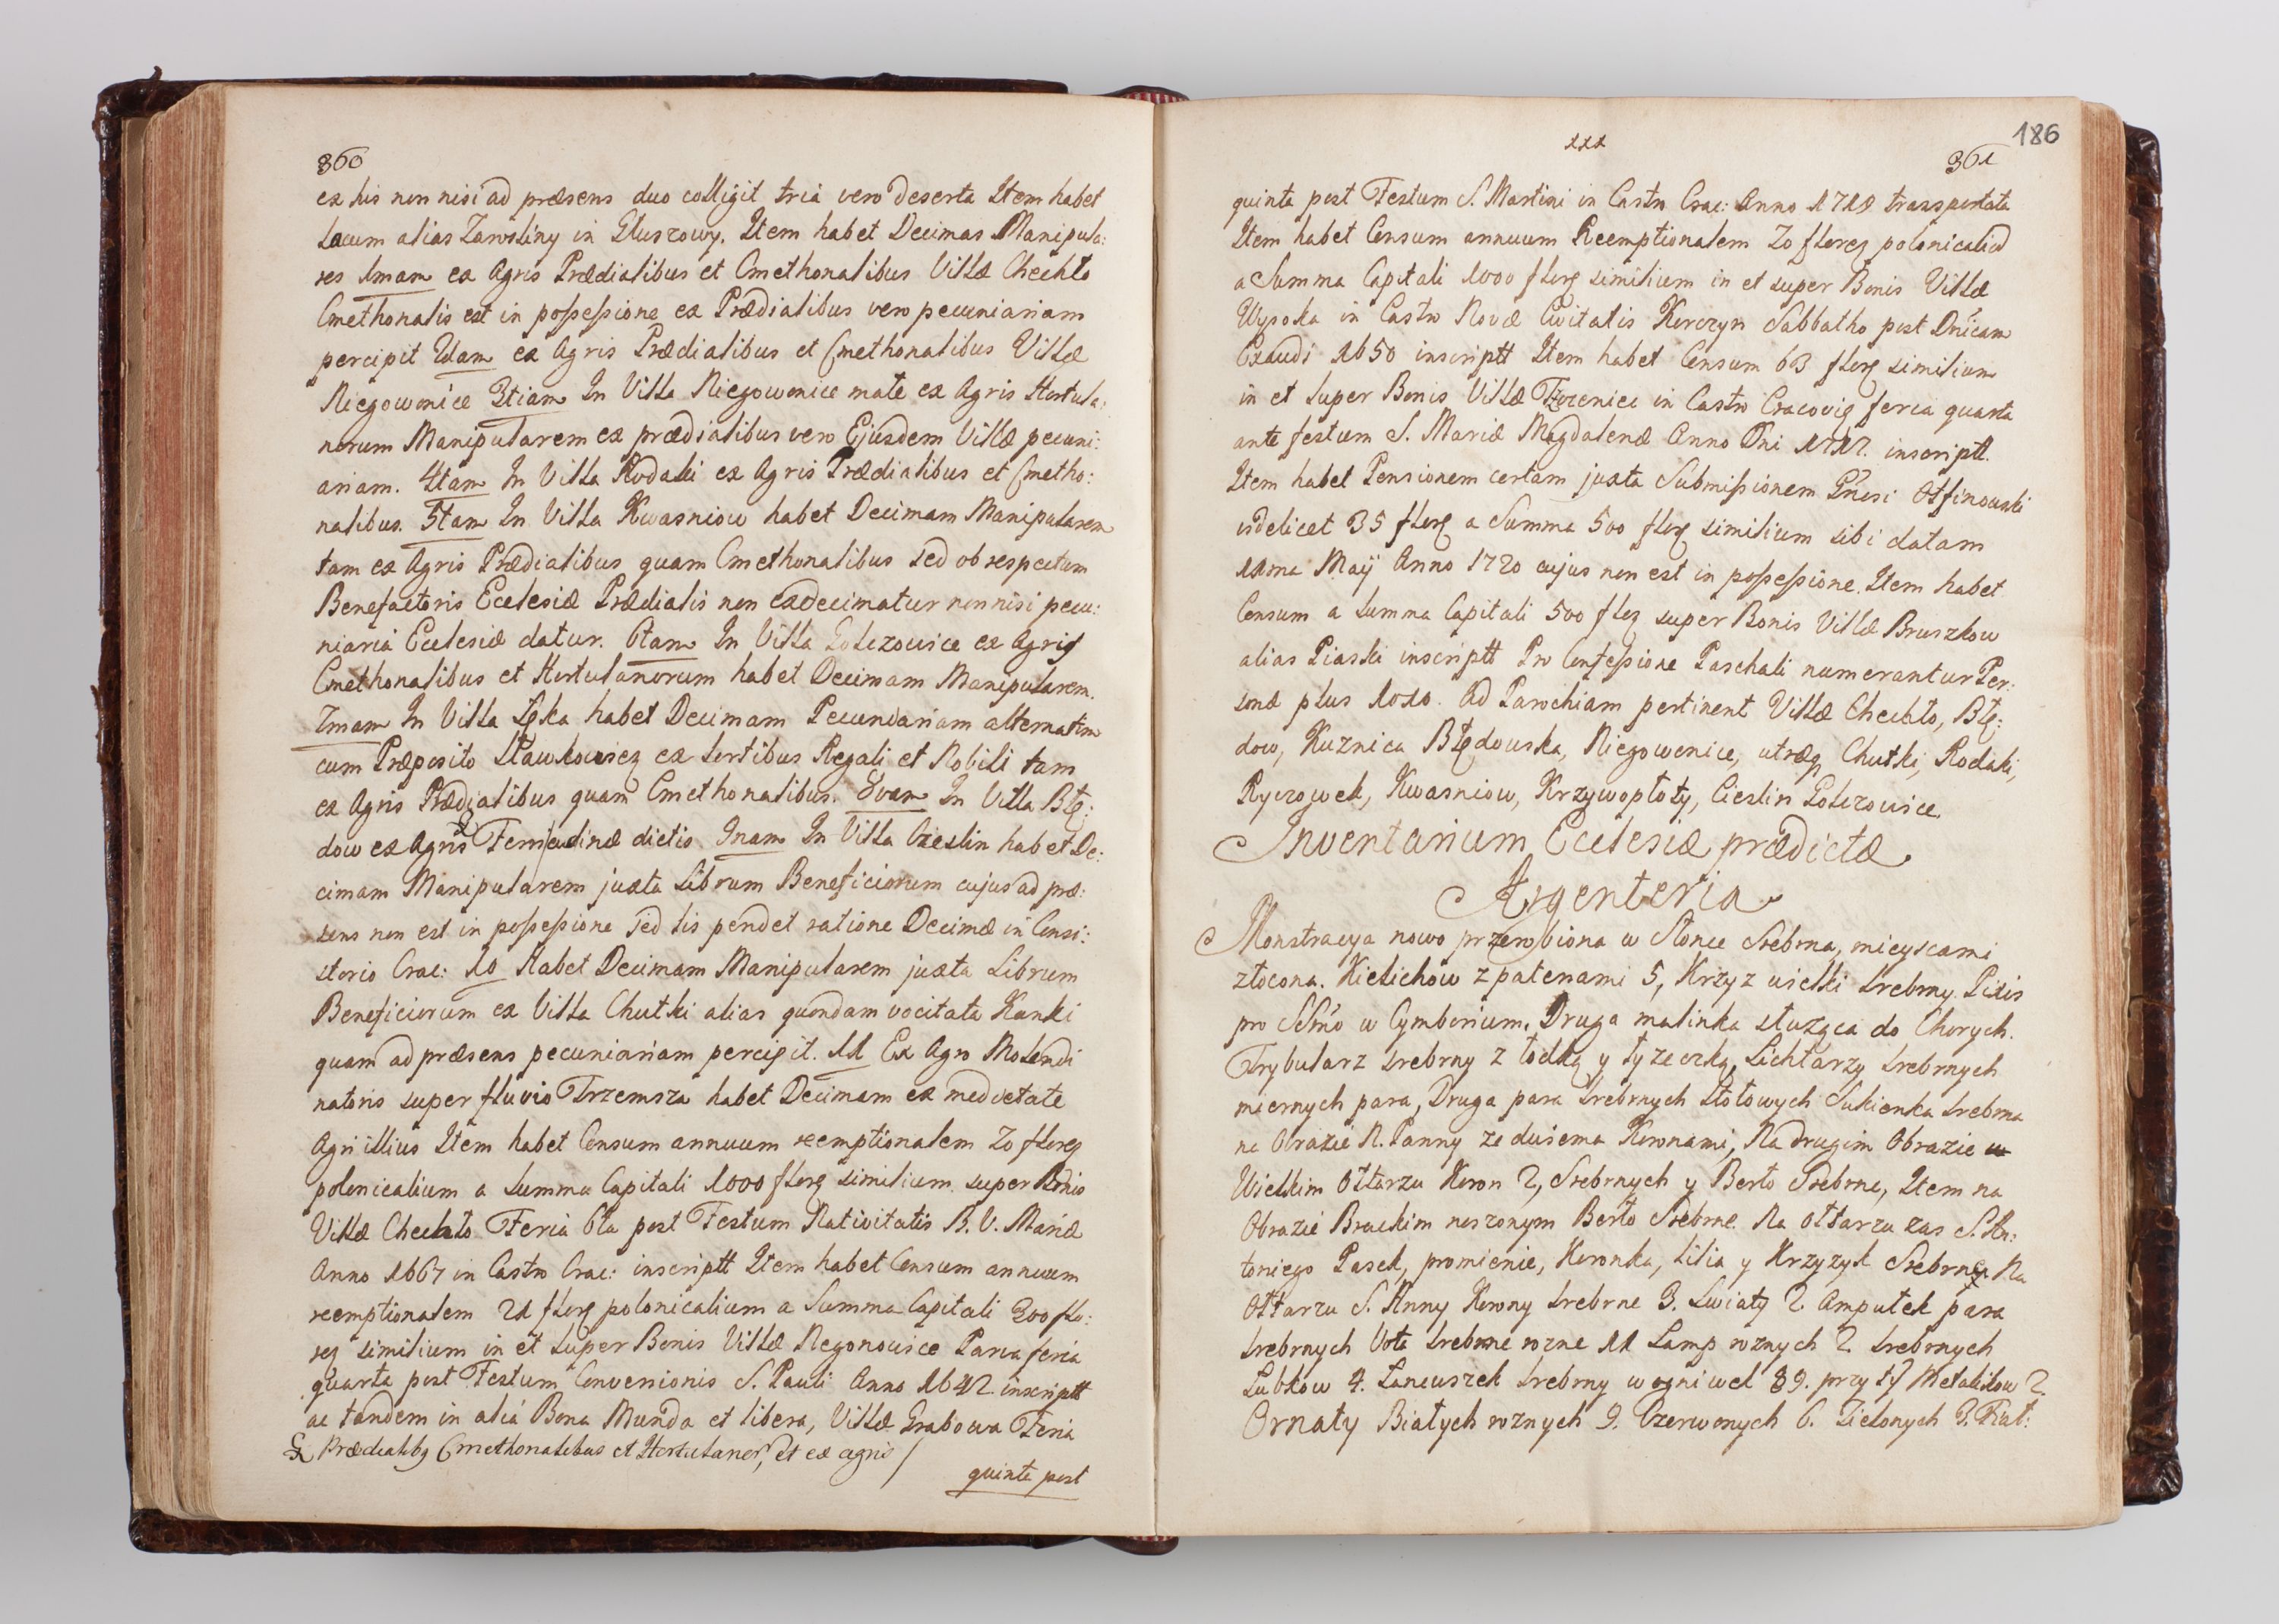 360
ex his non nisi ad præsens duo colligit tria vero deserta Item habet
Lacum alias Zarosliny in Gluszowy. Item habet Decimas Manipula:
res 1mam ex Agris Prædialibus et Cmethonalibus Villæ Chechło
Cmethonalis est in possessione ex Prædialibus vero pecuniariam
percipit 2dam ex Agris Prædialibus et Cmethonalibus Villæ
Niegowonice 3tiam In Villa Niegowonice małe ex Agris Hortula:
norum Manipularem ex prædialibus vero Ejusdem Villæ pecuni:
ariam. 4tam In Villa Rodaki ex Agris Prædialibus et Cmetho:
nalibus. 5tam In Villa Kwasniow habet Decimam Manipularem
tam ex Agris Prædialibus quam Cmethonalibus sed ob respectum
Benefactoris Ecclesiæ Prædialis non exdecimatur non nisi pecu:
niaria Ecclesiæ datur. 6tam In Villa Golczowice ex Agris
Cmethonalibus et Hortulanorum habet Decimam Manipularem.
7mam In Villa Łęka habet Decimam Pecuniariam alternatim
cum Præposito Sławkowicę ex sortibus Regali et Nobili tam
ex Agris Prædialibus quam Cmethonalibus. 8vam In Villa Błę:
dow ex Agris dictis 9nam In Villa Cieslin habet De:
cimam Manipularem juxta Librum Beneficiorum cujus ad præ:
sens non est in possessione sed lis pendet ratione Decimæ in Consi:
storio Crac: 10 Habet Decimam Manipularem juxta Librum
Beneficiorum ex Villa Chutki alias quondam vocitata Kunki
quam ad præsens pecuniariam percipit. 11 Ex Agro Molendi
natoris super fluvio Trzemsza habet Decimam ex medietate
Agri illius Item habet Censum annuum reemptionalem 70 floreɋ
polonicalium a summa Capitali 1000 florɋ similium super Bonis
Villæ Chechło Feria 6ta post Festum Nativitatis B. V. Mariæ
Anno 1667 in Castro Crac: inscriptt Item habet Censum annuum
reemptionalem 21 florɋ polonicalium a Summa Capitali 300 flo:
reɋ similium in et super Bonis Villæ Negonowice Parva feria
quarta post Festum Conversionis S. Pauli Anno 1642 inscriptt
ac tandem in alia Bona Munda et libera, Villæ Grabowa Feria
Prædialibɋ Cmethonalibus et Hortulanor, et ex agris /
quinta post
xxx
186
361
quinta post Festum S. Martini in Castro Crac: Anno 1718 transportata
Item habet Censum annuum Reemptionalem 70 floreɋ polonicaliu
a Summa Capitali 1000 florɋ similium in et super Bonis Villæ
Wysoka in Castro Novæ Civitatis Korczyn Sabbatho post Dnicam
Exaudi 1650 inscriptt Item habet Censum 63 florɋ similium
in et super Bonis Villæ in Castro Cracoviɋ feria quarta
ante festum S. Mariæ Magdalenæ Anno Dni 1712. inscriptt.
Item habet Pensionem certam juxta Submissionem Gnosi Otfinowski
videlicet 35 florɋ a Summa 500 florɋ similium sibi datam
11ma Maÿ Anno 1720 cujus non est in possessione. Item habet
Censum a summa Capitali 500 floɋ super Bonis Villæ Bruszkow
alias Piaski inscriptt Pro Confessione Paschali numerantur Per:
sonæ plus 1010. Ad Parochiam pertinent Villæ Chechło, Błę:
dow, Kuznica Błędowska, Niegowonice, utræq Chutki, Rodaki,
Ryczowek, Kwasniow, Krzywopłoty, Cieslin Golczowice.
Inventarium Ecclesiæ prædictæ
Argenteria
Monstracya nowo przerobiona w Słonce Srebrna, mieyscami
złocona. Kielichow z patenami 5, Krzyz wielki srebrny. Pixis
pro SSmo w Cymborium. Druga malinka służąca do Chorych.
Trybularz srebrny z łodką y łyzeczką, Lichtarzy srebrnych
miernych para, Druga para srebrnych stołowych Sukienka srebrna
na Obrazie N. Panny ze dwiema Koronami, Na drugim Obrazie w
Wielkim Ołtarzu Koron 2, Srebrnych y Berło Srebrne, Item na
Obrazie Brackim noszonym Berło Srebrne. Na ołtarzu zas S. An:
toniego Pasek, promienie, Koronka, Lilia y Krzyzyk Srebrny Na
Ołtarzu S. Anny Korony srebrne 3. Swiaty 2. Ampułek para
srebrnych Vota srebrne rozne 11 Lamp roznych 2 srebrnych
Lubkow 4. Łancuszek srebrny w ogniwek 89. przy ty Metalikow 2.
Ornaty Białych roznych 9. Czerwonych 6. Zielonych 3. Fiał: